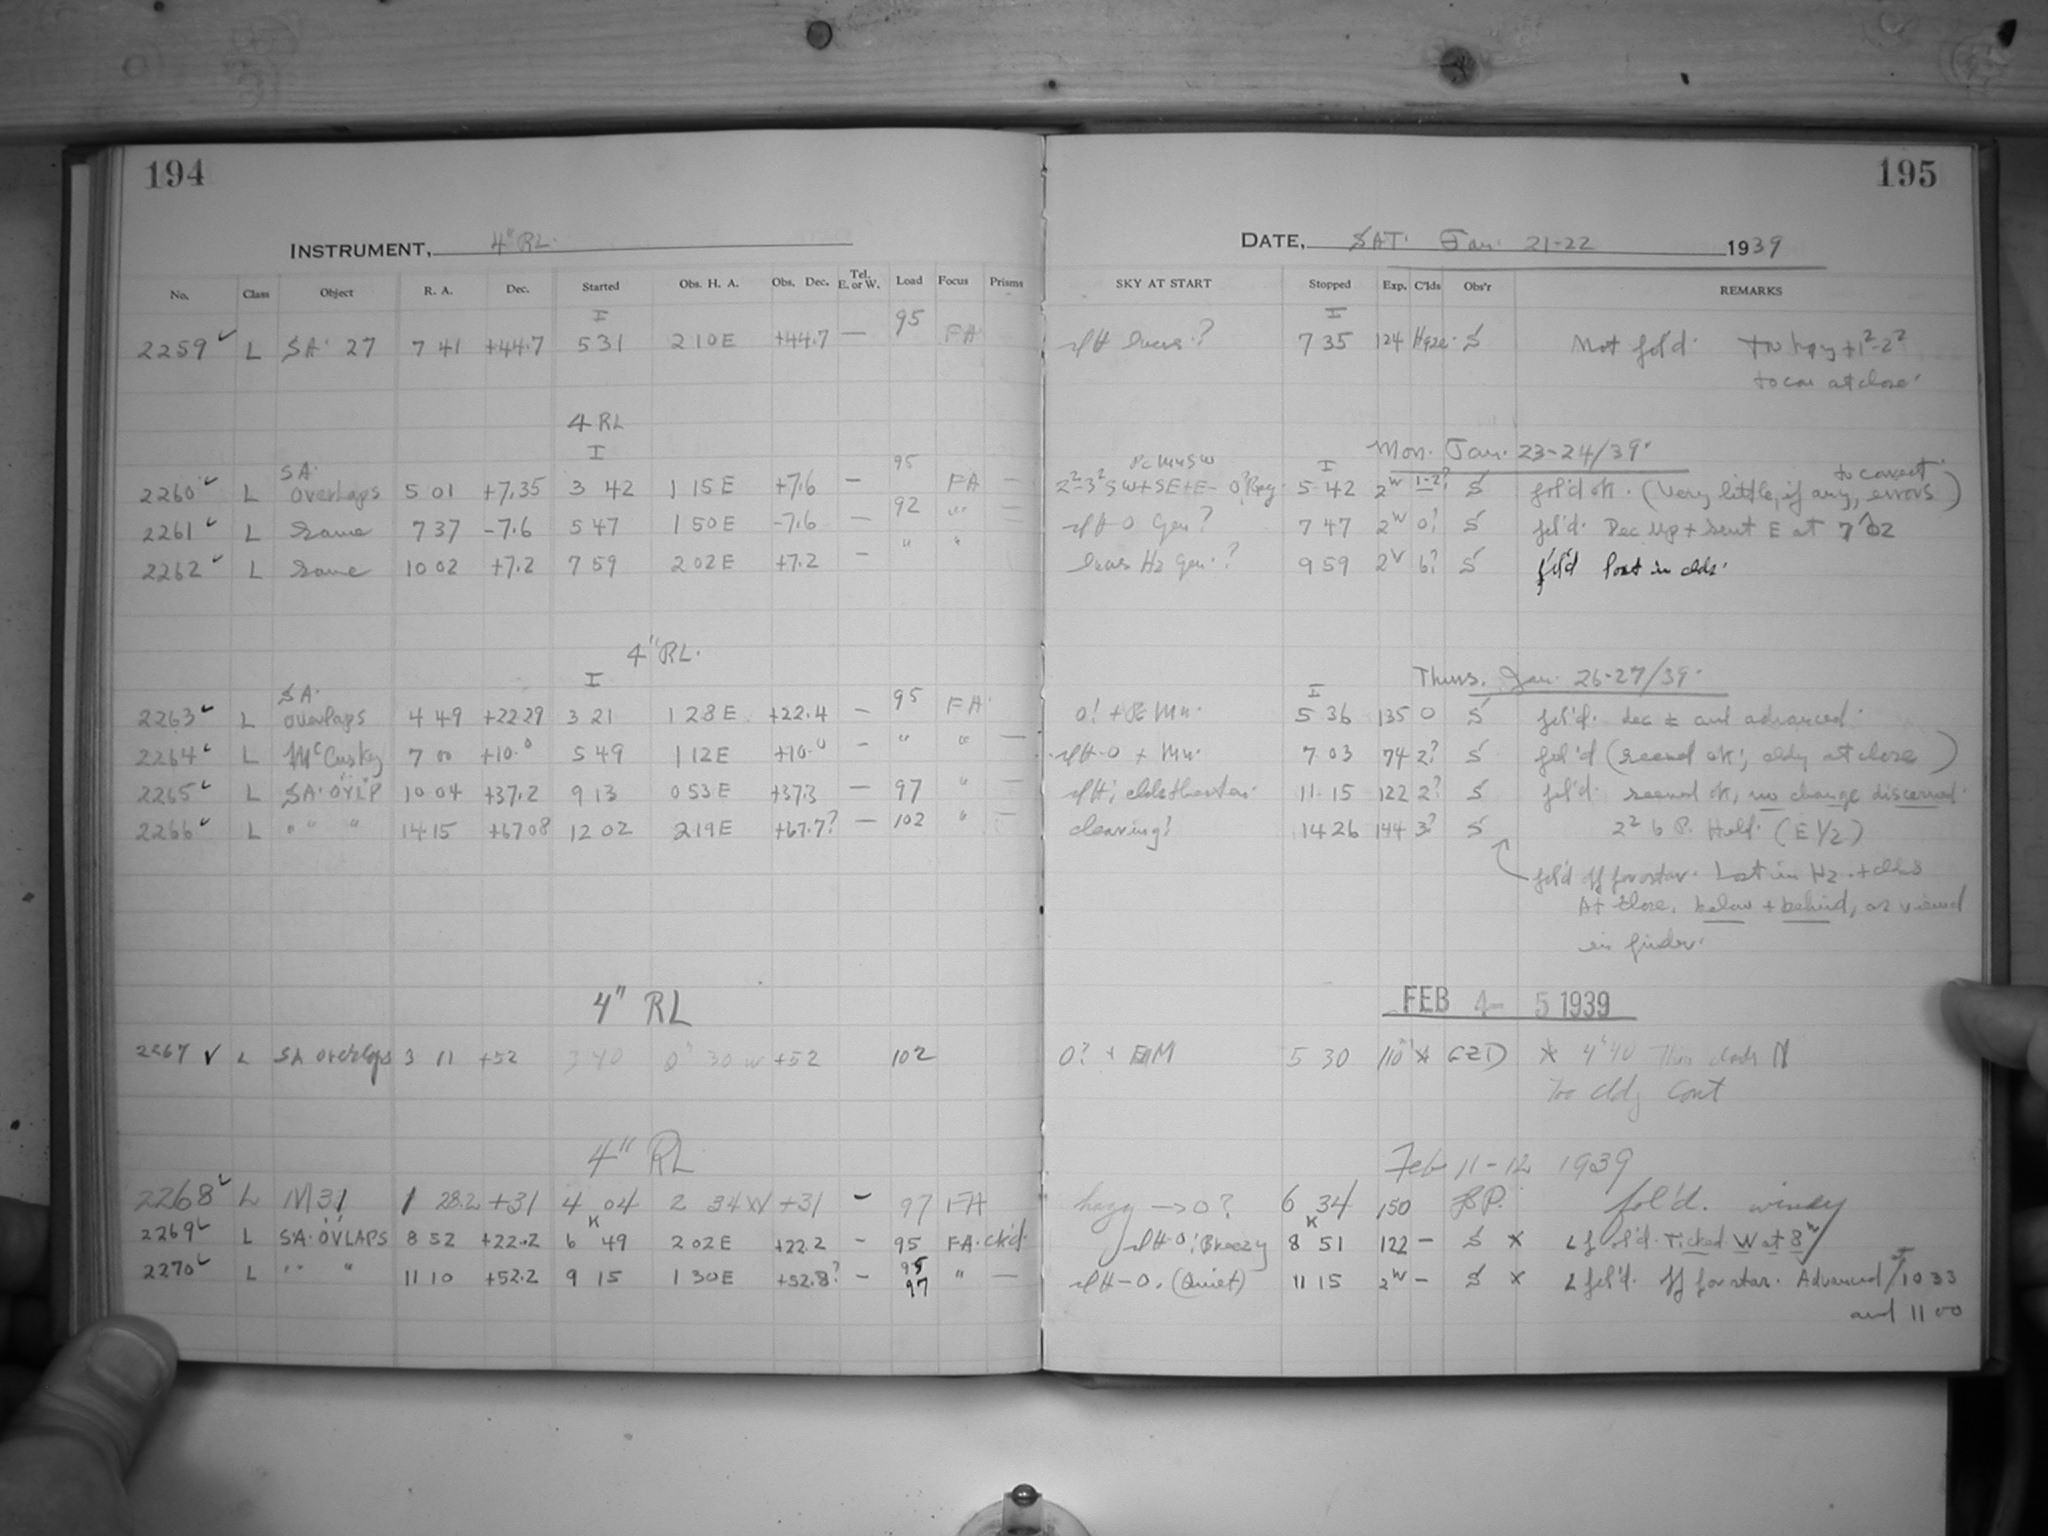 194
INSTRUMENT, 4" RL.
No. Class Object R. A. Dec. Started Obs. H. A. Obs. Dec. Tel. E. or W. Load Focus Prisms
I
2259 L SA. 27 7 41 +44.7 5 31 2 10 E +44.7 — 95 FA
4 RL
I
2260 L SA. Overlaps 5 01 +7.35 3 42 1 15 E +7.6 — 95 FA —
2261 L Same 7 37 -7.6 5 47 1 50 E -7.6 — 92 " —
2262 L Same 10 02 +7.2 7 59 2 02 E +7.2 — " "
4" RL.
I
2263 L SA. overlaps 4 49 +22 29 3 21 1 28 E +22.4 — 95 FA.
2264 L McCusky 7 00 +10.0 5 49 1 12 E +10.0 — " " —
2265 L SA. OVLP 10 04 +37.2 9 13 0 53 E +37.3 — 97 " —
2266 L " " " 14 15 +67 08 12 02 2 19 E +67.7? — 102 " —
4" RL
2267 L SA overlaps 3 11 +52 3 40 0 30 W +52 102
4" RL
2268 L M31 1 28.2 +31 4 04 2 34 W +31 - 97 FA
2269 L SA. OVLAPS 8 52 +22.2 6 K 49 2 02 E +22.2 - 95 FA. ck'd.
2270 L " " 11 10 +52.2 9 15 1 30 E +52.8? - 95 97 " —
195
DATE, SAT. Jan. 21-22 1939
SKY AT START Stopped Exp. C'lds Obs'r REMARKS
I
7 35 124 Haze. S Not fol'd.
to con at close.
Mon. Jan. 23-24/39.
I
5 42 2 1-2? S fol'd ok. (Very little, if any, errors) to correct
O Gen? 7 47 2 0? S fol'd. Dec up + sent E at 7 02
Hz gen.? 9 59 2 6? S fol'd lost in clds.
Thurs. Jan. 26-27/39.
I
0! + Mn. 5 36 135 0 S fol'd. dec ± and advanced.
O + Mn. 7 03 74 2? S fol'd (seemed ok; cldy at close)
11 15 122 2? S fol'd. seemed ok, no change discerned.
clearing! 14 26 144 3? S (E 1/2)
fol'd off for star. Lost in Hz. + clds
At close. below + behind, as viewed
in finder.
FEB 4- 5 1939
0? + M 5 30 110 * * 4 40 Thin clouds N
Too cldy Cont
Feb 11-12 1939
hazy → 0? 6 34 150 fol'd. windy
O; Breezy 8 K 51 122 — S × fol'd. Ticked W at 8
O. (Quiet) 11 15 2 — S × fol'd. off for star. Advanced 10 33
and 11 00